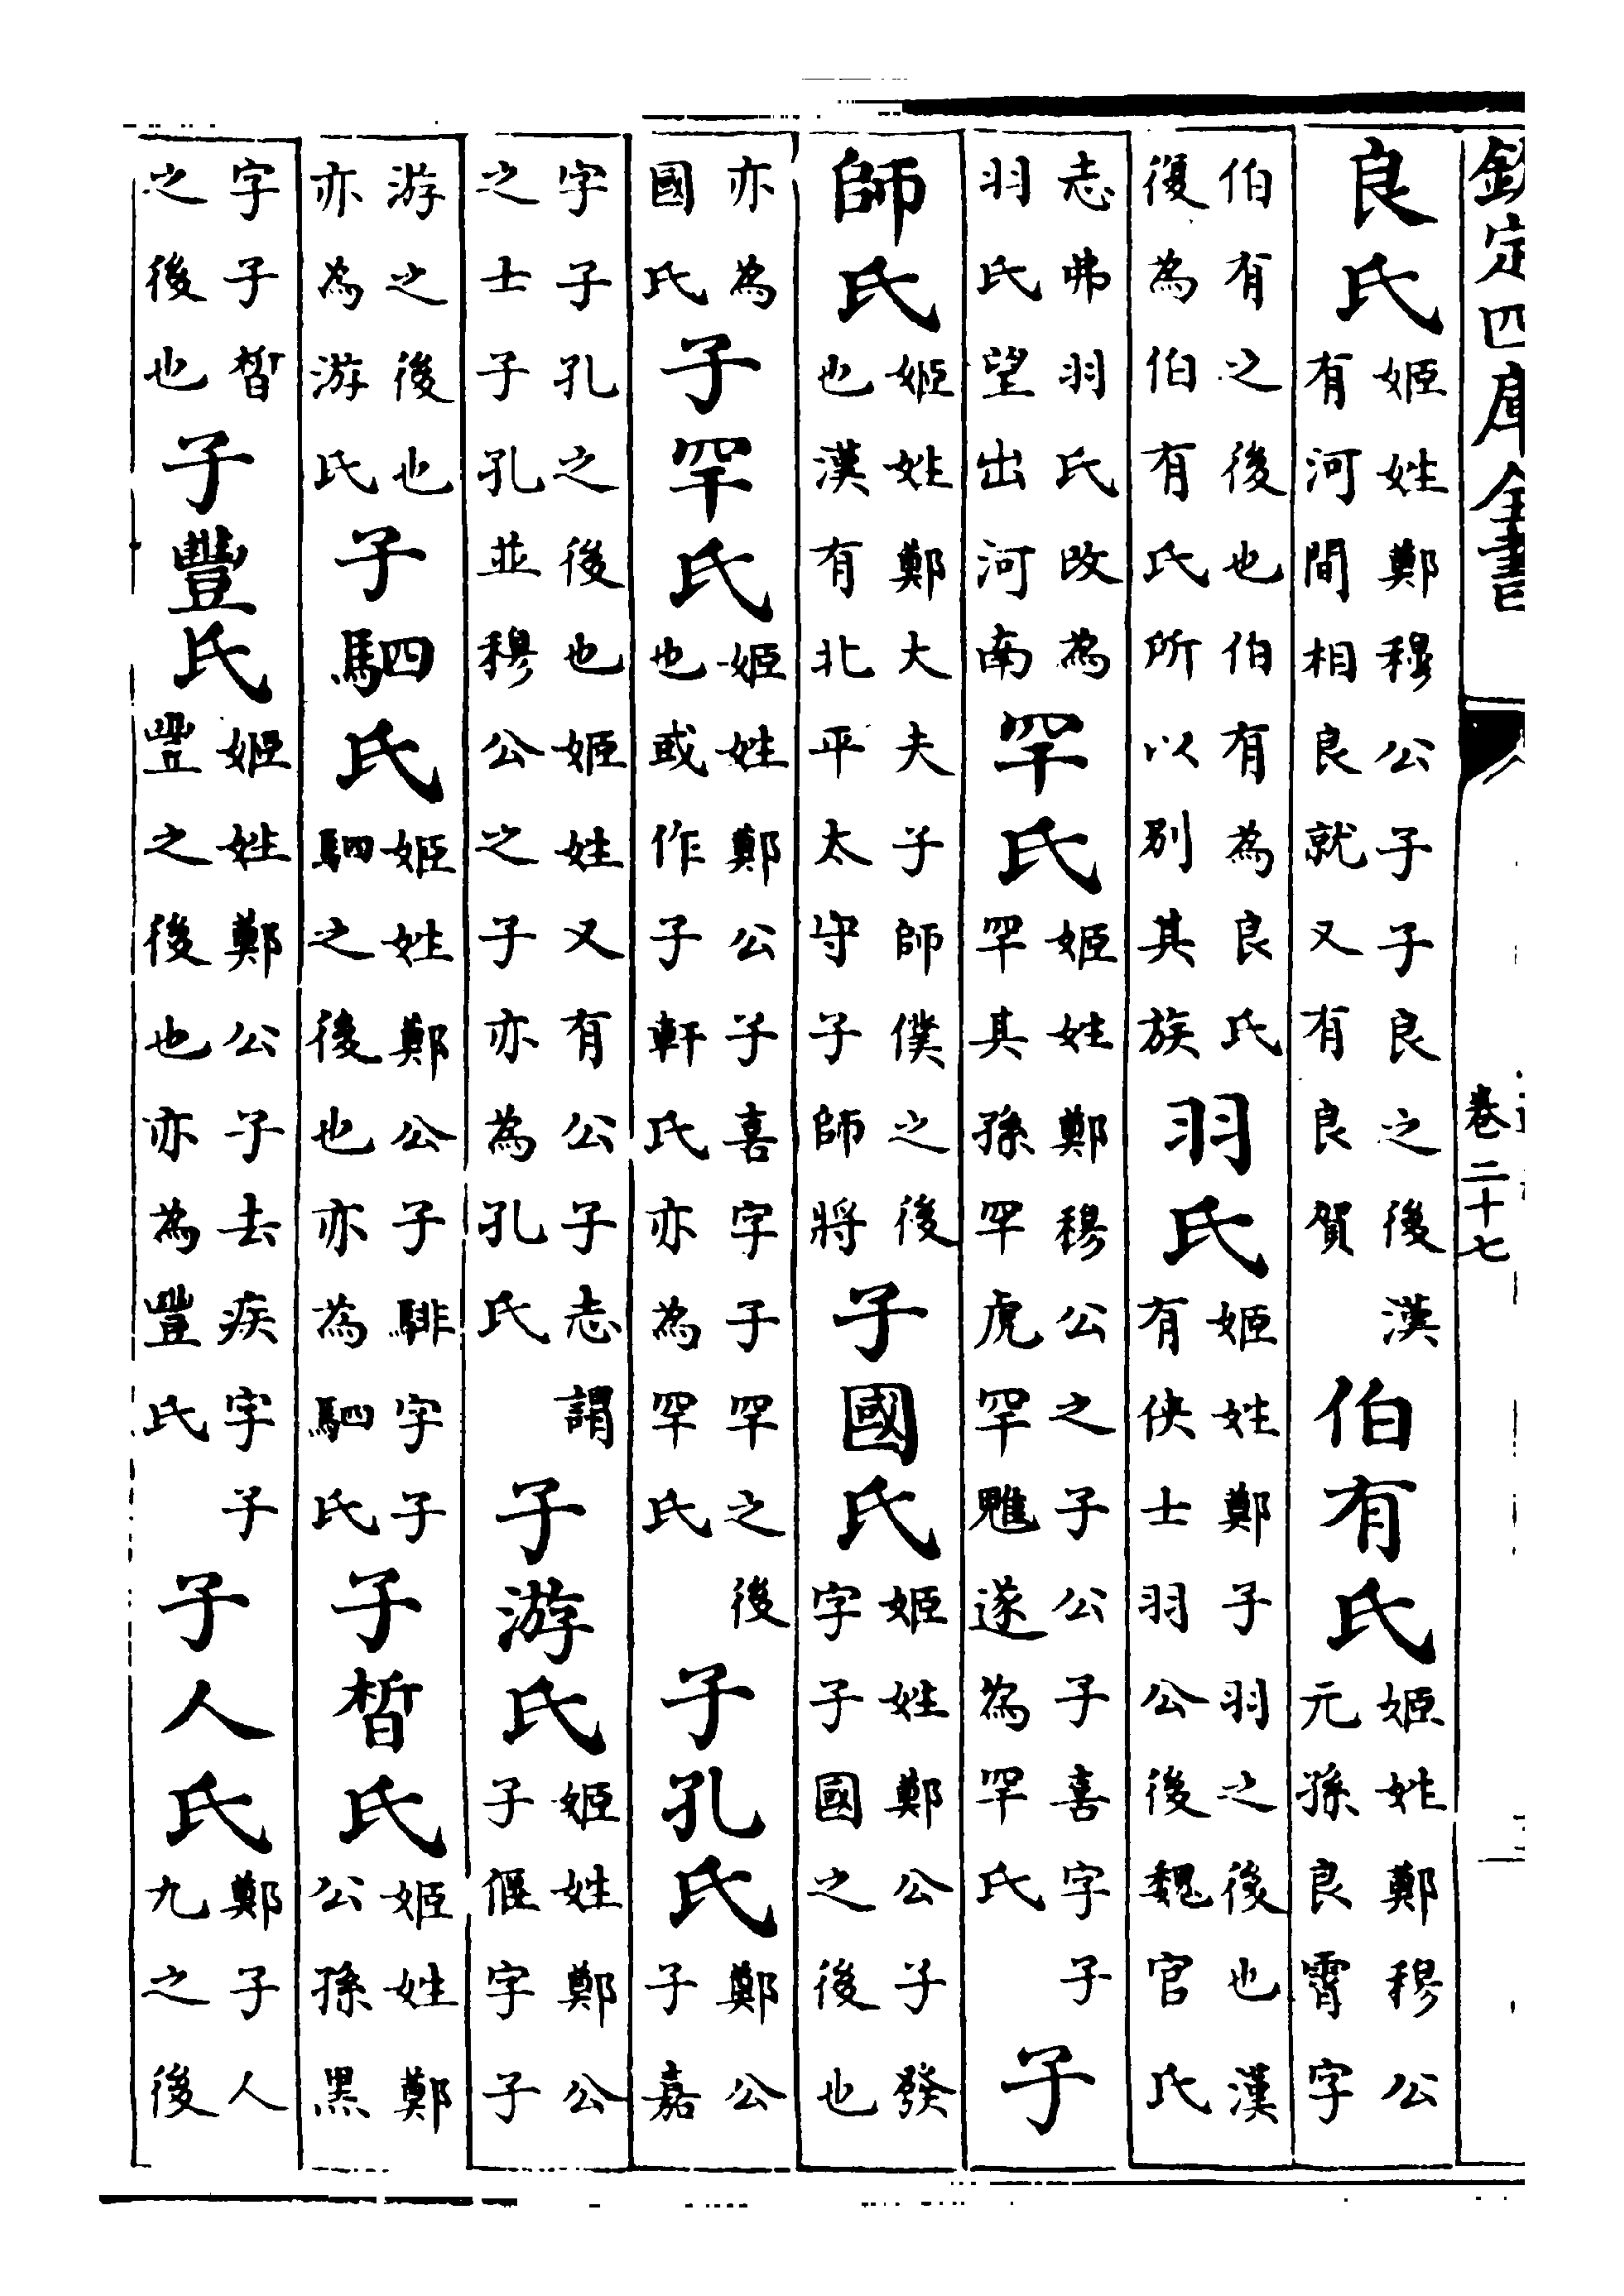 欽定四庫全書 卷二十七
良氏姬姓鄭穆公子子良之後漢有河間相良就又有良賀 伯有氏姬姓鄭穆公元孫良霄字
伯有之後也伯有為良氏復為伯有氏所以別其族 羽氏姬姓鄭子羽之後也漢有俠士羽公後魏官氏
志弗羽氏改為羽氏望出河南 罕氏姬姓鄭穆公之子公子喜字子罕其孫罕虎罕魋遂為罕氏 子
師氏姬姓鄭大夫子師僕之後也漢有北平太守子師將 子國氏姬姓鄭公子發字子國之後也
亦為國氏 子罕氏姬姓鄭公子喜字子罕之後也或作子軒氏亦為罕氏 子孔氏鄭公子嘉
字子孔之後也姬姓又有公子志謂之士子孔並穆公之子亦為孔氏 子游氏姬姓鄭公子偃字子
游之後也亦為游氏 子駟氏姬姓鄭公子騑字子駟之後也亦為駟氏 子晳氏姬姓鄭公孫黑
字子晳之後也 子豐氏姬姓鄭公子去疾字子豐之後也亦為豐氏 子人氏鄭子人九之後